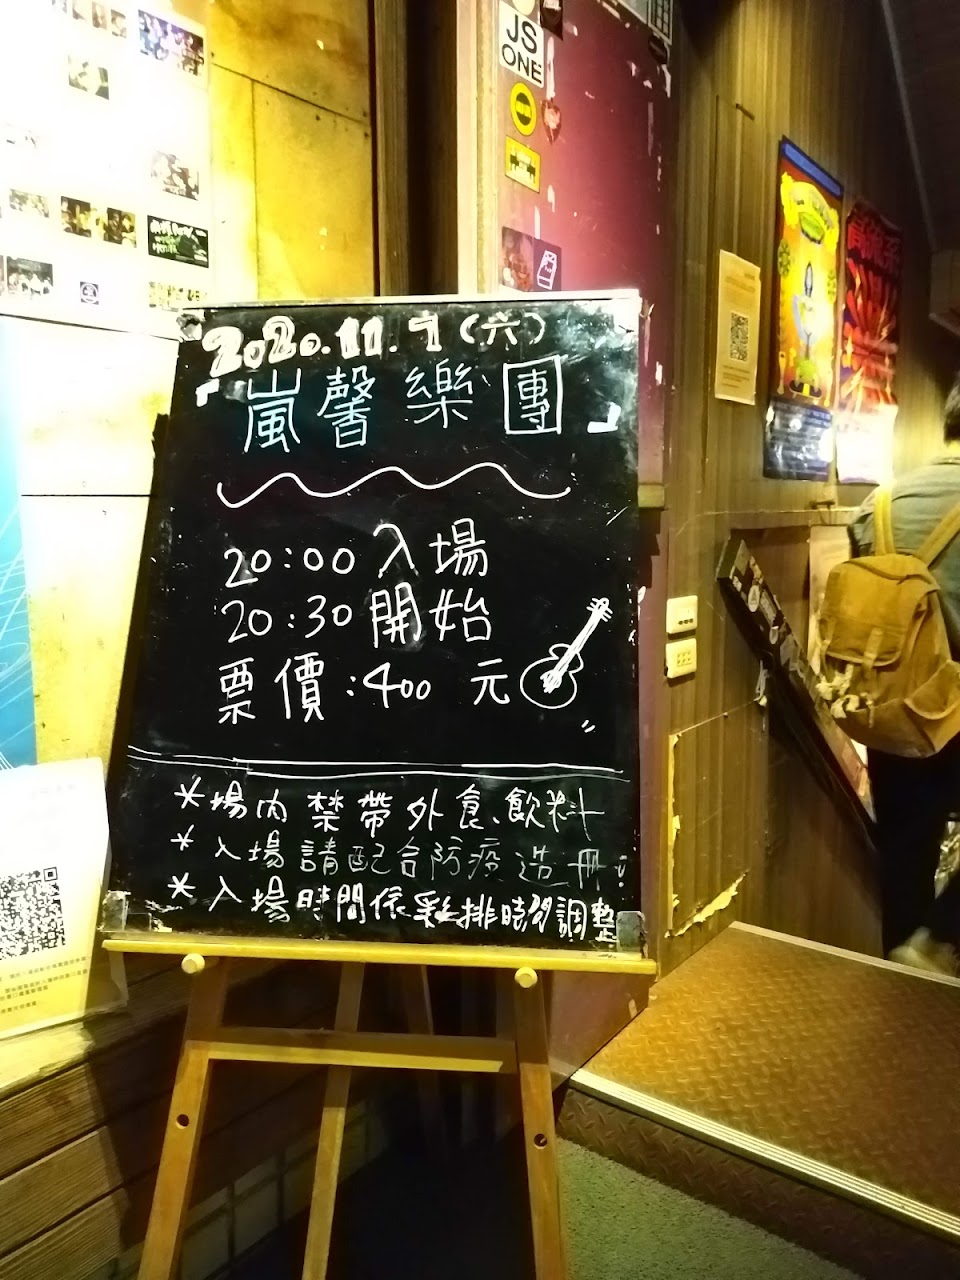 JS
ONE
2020.11.7(六)
「嵐馨樂團」
20:00 入場
20:30 開始
票價:400 元
*場內禁帶外食、飲料
*入場請配合防疫造冊!
*入場時間依彩排時間調整